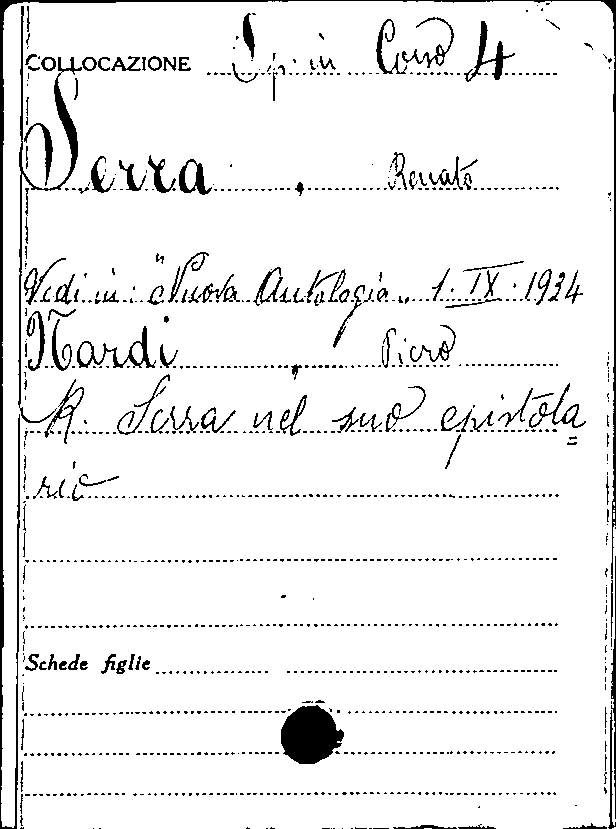 COLLOCAZIONE Sp. in Corso 4
Serra, Renato
Vedi in: "Nuova Antologia„ 1. IX. 1934
Nardi, Piero
R. Serra nel suo epistola=
rio
Schede figlie